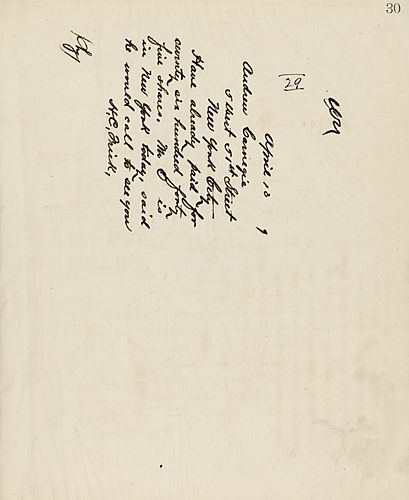 30
29
April 13 9
Andrew Carnegie
5 West 51st Street
New York City
Have already paid for
seventy six hundred forty
five shares. Mr is
in New York today, said
he would call to see you
H. C. Frick,